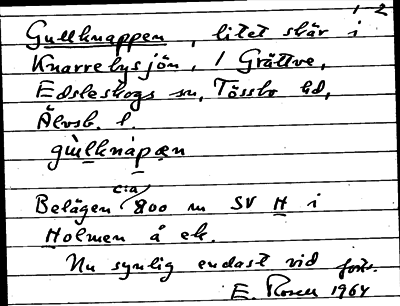 1 2
Gullknappen, litet skär i
Knarrebysjön, / Grättve,
Edsleskogs sn, Tössbo hd,
Älvsb. l.
gullknapen
Belägen c:a 800 m SV H i
Holmen å ek.
Nu synlig endast vid
E. Rosen 1964